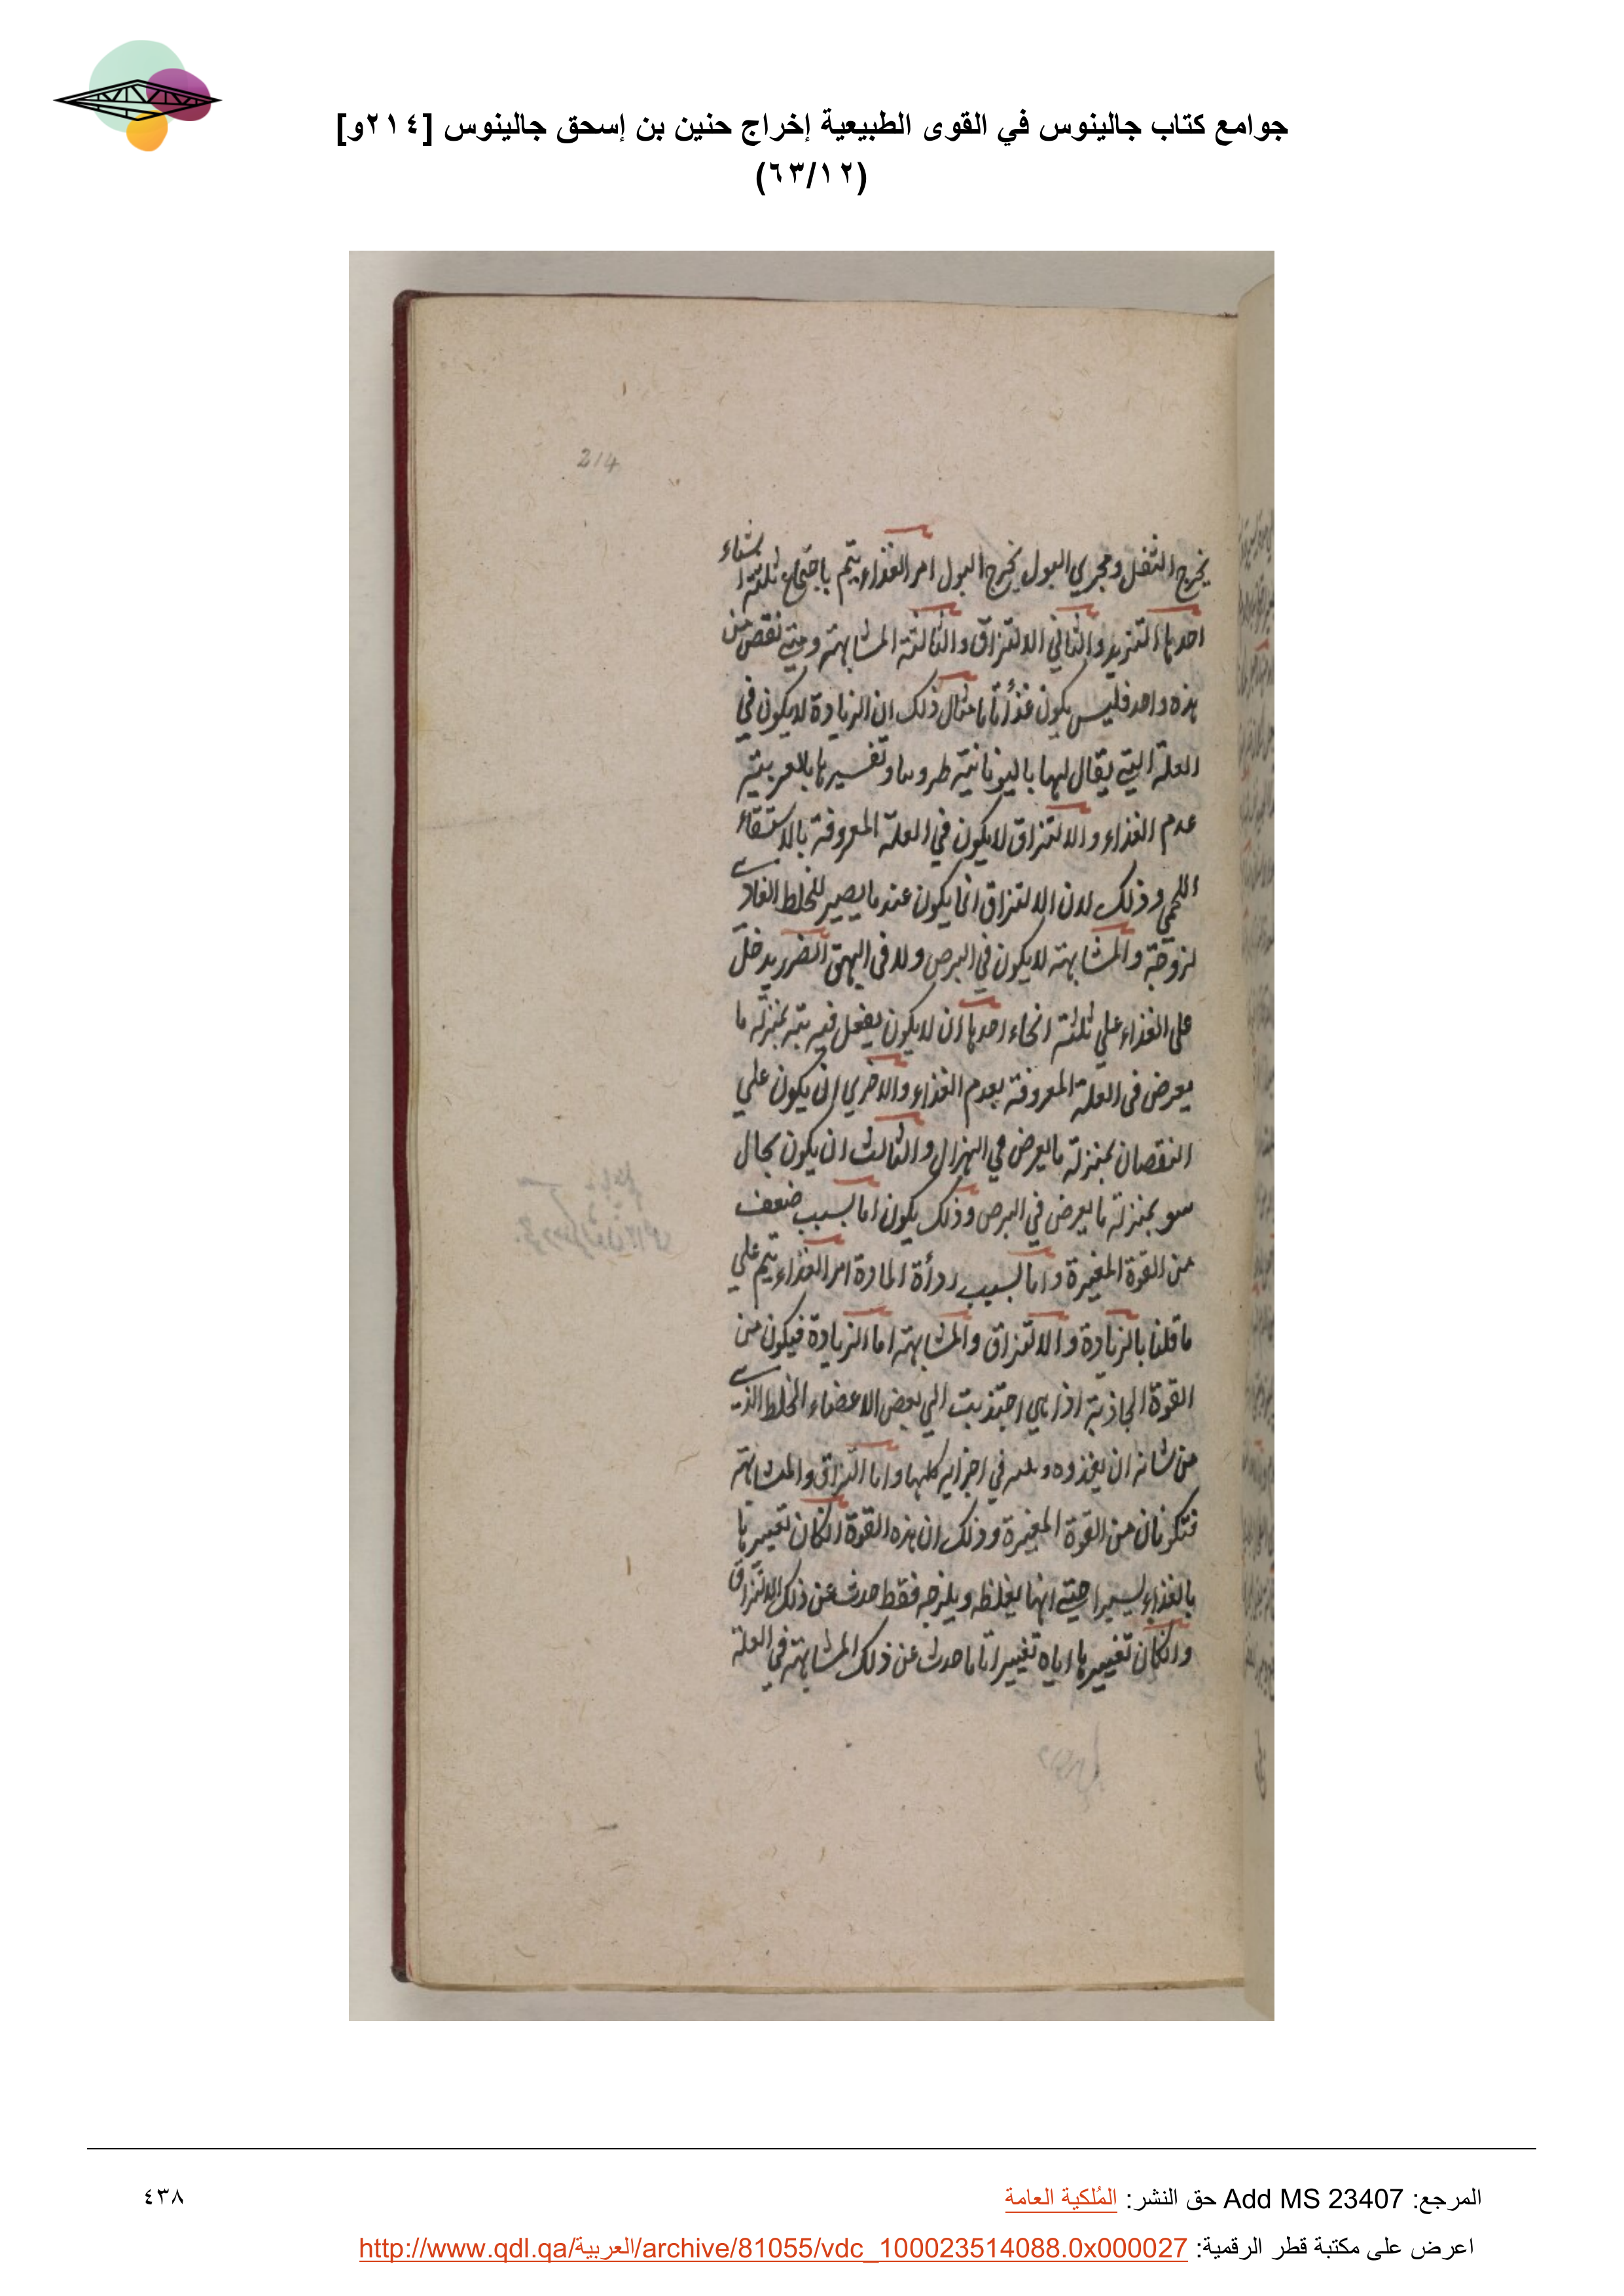 جوامع كتاب جالينوس في القوى الطبيعية إخراج حنين بن إسحق جالينوس [٢١٤و]
(٦٣/١٢)
214
يخرج الثفل ومجري البول يخرج البول امر الغذاء يتم باجتماع ثلثة اشياء
احدها التزيد والثاني الالتزاق والثالثة المشابهة ومتي نقص من
هذه واحد فليس يكون غذأ تاما مثال ذلك ان الزيادة لا يكون في
العلة التي يقال لها باليونانية وتفسيرها بالعربية
عدم الغذاء والالتزاق لا يكون في العلة المعروفة بالاستسقاء
اللحمي وذلك لان الالتزاق انما يكون عندما يصير للخلط الغاذي
لزوجة والمشابهة لا يكون في البرص ولا في البهق الضرر يدخل
على الغذاء علي ثلثة انحاء احدها ان لا يكون يفعل فيه بتة بمنزلة ما
يعرض في العلة المعروفة بعدم الغذاء والاخري ان يكون علي
النقصان بمنزلة ما يعرض في الهزال والثالث ان يكون بحال
سو بمنزلة ما يعرض في البرص وذلك يكون اما بسبب ضعف
من القوة المغيرة واما بسبب ردأة المادة امر الغذاء يتم علي
ما قلنا بالزيادة والالتزاق والمشابهة اما الزيادة فيكون من
القوة الجاذبة اذا هي اجتذبت الي بعض الاعضاء الخلط الذي
من شانه ان يغذوه في اجزايه كلها واما التزاق والمشابهة
فتكونان من القوة المغيرة وذلك ان هذه القوة انكان تغييرها
بالغذاء يسيرا حتي انها يغلظه ويلزجه فقط حدث عن ذلك الالتزاق
وانكان تغييرها اياه تغييرا تاما حدث عن ذلك المشابهة في العلة
المرجع: Add MS 23407 حق النشر: المُلكية العامة
٤٣٨
اعرض على مكتبة قطر الرقمية: http://www.qdl.qa/العربية/archive/81055/vdc_100023514088.0x000027